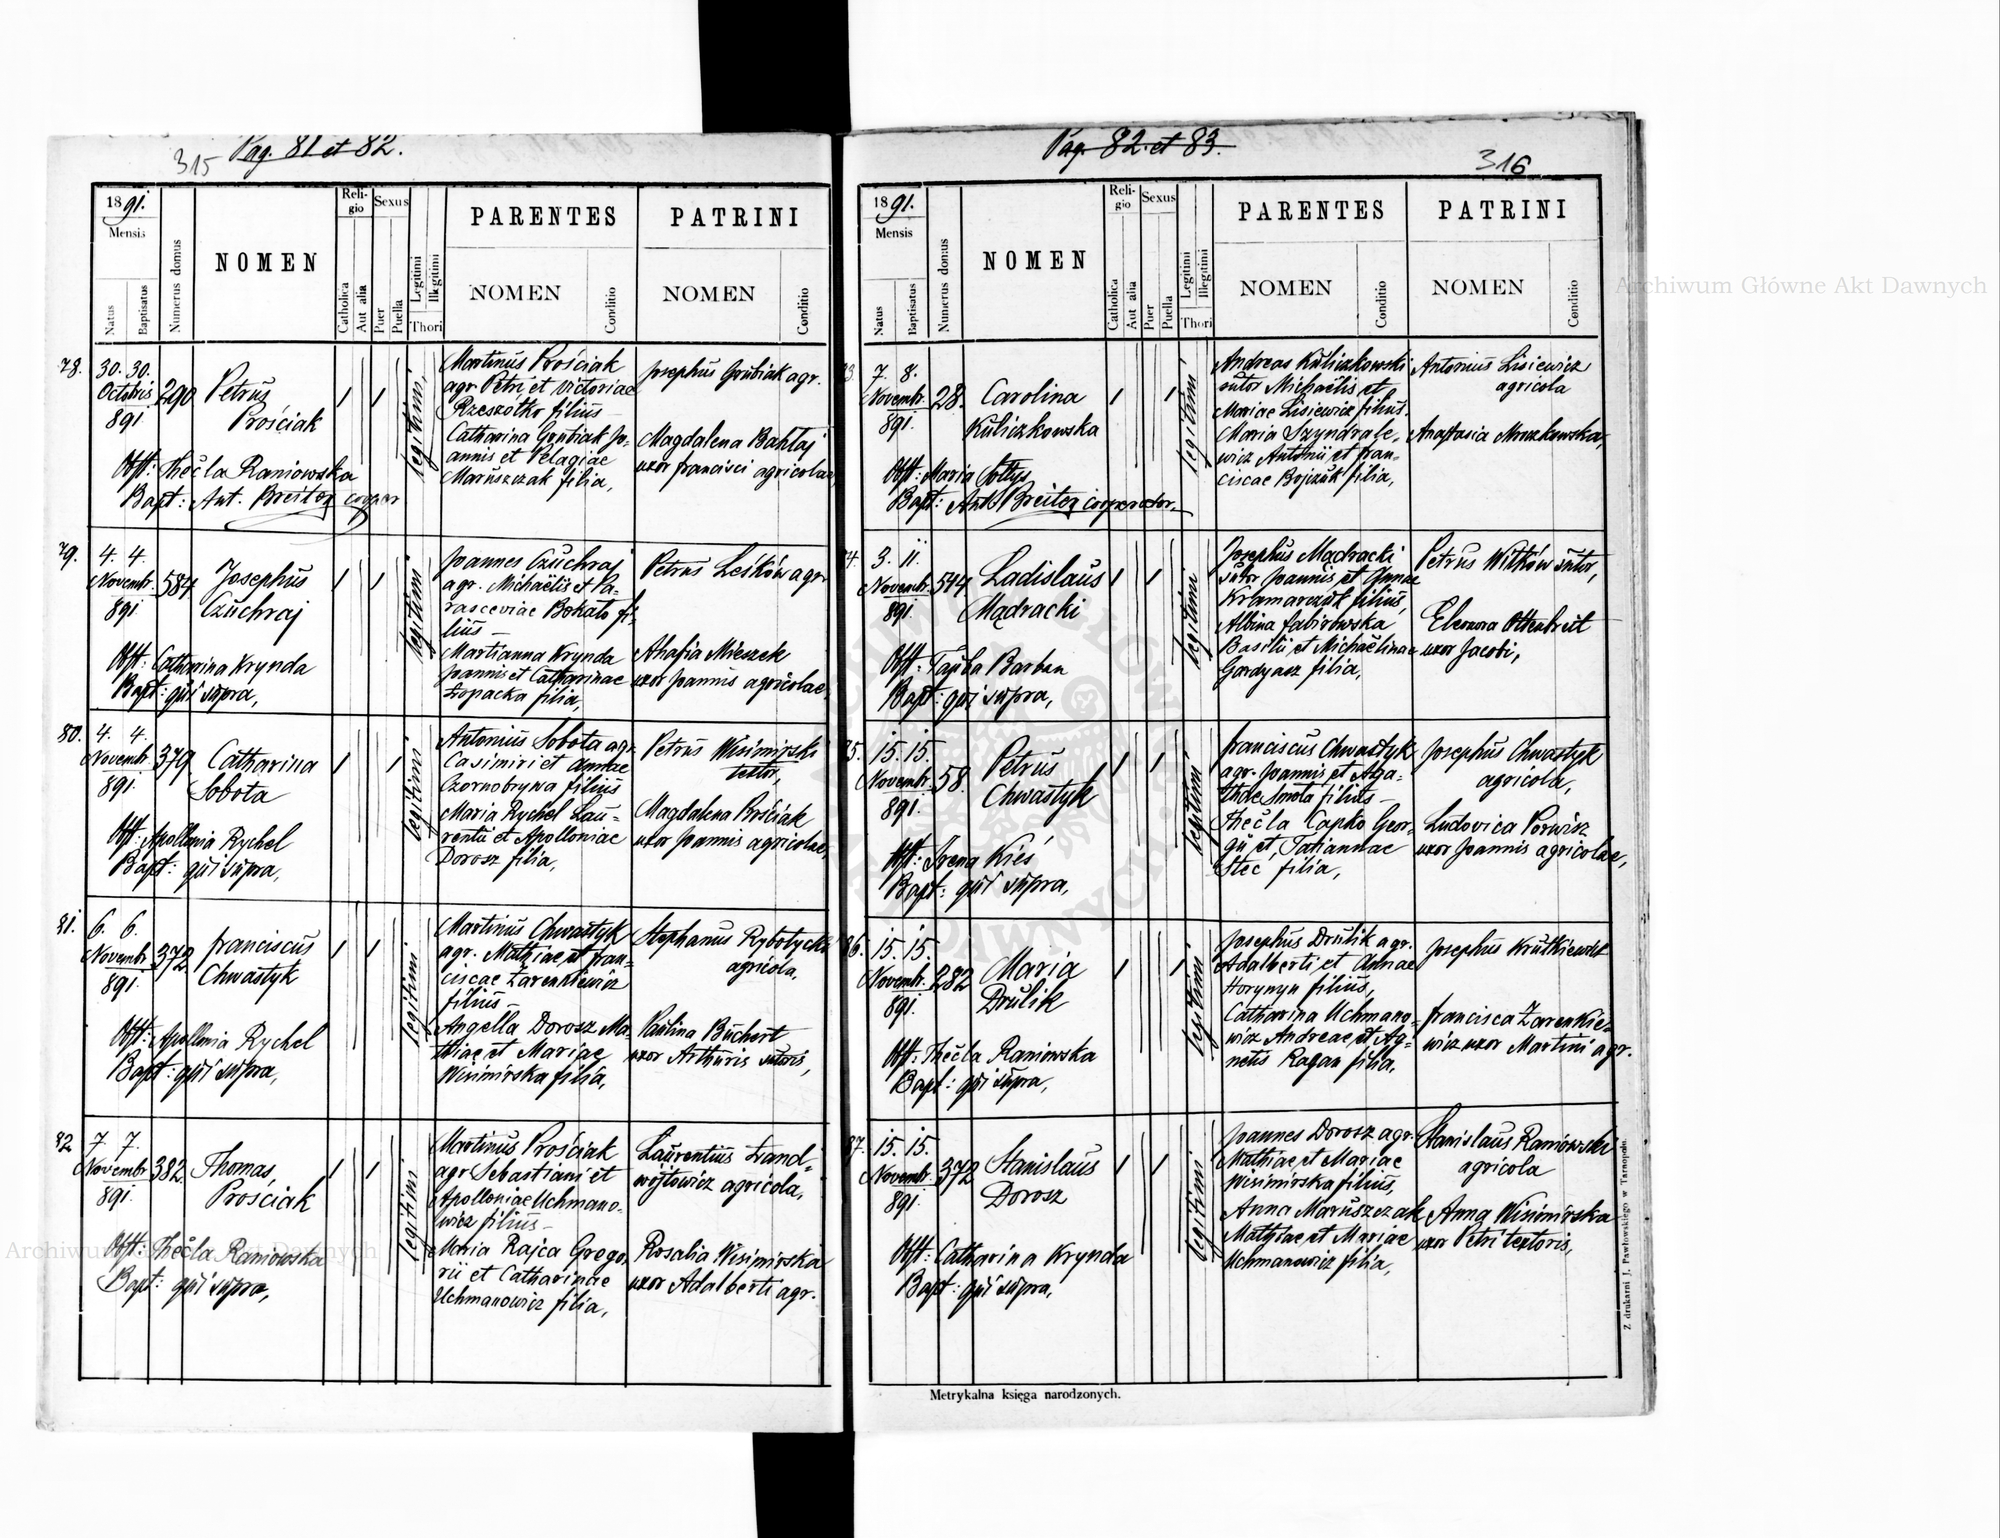 Pag. 81 et 82.
315
1891.
Mensis
Natus
Baptisatus
Numerus domus
NOMEN
Religio
Catholica
Aut alia
Sexus
Puer
Puella
Legitimi
Illegitimi
Thori
PARENTES
NOMEN
Conditio
PATRINI
NOMEN
Conditio
78.
30. 30.
Octobris
891.
290
Petrus
Prościak
Obst: Thećla Raniowska
Bapt: Ant. Breiter cooper
legitimi
Martinus Prościak
agr. Petri et Victoriae
Rzeszotko filius –
Catharina Grubiak Jo-
annis et Pelagiae
Maruszczak filia,
Josephus Grubiak agr.
Magdalena Bahtaj
uxor Francisci agricolae
79.
4. 4.
Novembr.
891
584
Josephus
Czuchraj
Obst: Catharina Krynda
Bapt: qui supra,
legitimi
Joannes Czuchraj
agr. Michaëlis et Pa-
rasceviae Bokało fi-
lius –
Martianna Krynda
Joannis et Catharinae
Łopacka filia,
Petrus Leśków agr
Anafia Mieszek
uxor Joannis agricolae,
80.
4. 4.
Novembr.
891.
379
Catharina
Sobota
Obst: Apollonia Rychel
Bapt: qui supra,
legitimi
Antonius Sobota agr.
Casimiri et Annae
Czornobrywa filius
Maria Rychel Lau-
rentii et Apolloniae
Dorosz filia,
Petrus Wisimirski
textor,
Magdalena Prościak
uxor Joannis agricolae,
81.
6. 6.
Novembr.
891.
372
Franciscus
Chwastyk
Obst: Apollonia Rychel
Bapt: qui supra,
legitimi
Martinus Chwastyk
agr. Mathiae et Fran-
ciscae Zarenkiewicz
filius –
Angella Dorosz Ma-
thiae et Mariae
Wisimirska filia,
Stephanus Rybotycki
agricola,
Paulina Buchert
uxor Arthuris sutoris,
82
7. 7.
Novembr
891.
382
Thomas,
Prościak
Obst: Thećla Raniowska
Bapt: qui supra,
legitimi
Martinus Prościak
agr Sebastiani et
Apolloniae Uchmano-
wicz filius –
Maria Rajca Grego-
rii et Catharinae
Uchmanowicz filia,
Laurentius Land-
wójtowicz agricola,
Rosalia Wisimirska
uxor Adalberti agr.
Pag. 82. et 83.
316
1891.
Mensis
Natus
Baptisatus
Numerus domus
NOMEN
Religio
Catholica
Aut alia
Sexus
Puer
Puella
Legitimi
Illegitimi
Thori
PARENTES
NOMEN
Conditio
PATRINI
NOMEN
Conditio
7. 8.
Novembr.
891.
28.
Carolina
Kuliczkowska
Obst: Maria Sołtys
Bapt: Ant Breiter cooperator
legitimi
Andreas Kuliczkowski
sutor Michaëlis et
Mariae Lisiewicz filius.
Maria Szyndrale-
wicz Antonii et Fran-
ciscae Bojczuk filia,
Antonius Lisiewicz
agricola
Anastasia Mroczkowska,
3. 11.
Novembr.
891.
544
Ladislaus
Mądracki
Obst: Tauba Barban
Bapt: qui supra,
legitimi
Josephus Mądracki
sutor Joannis et Annae
Kramarczuk filius,
Albina Fabirowska
Basilii et Michaëlinae
Gordyasz filia,
Petrus Witków sutor,
Eleonora Ottenbreit
uxor Jacobi,
85.
15. 15.
Novembr.
891.
58.
Petrus
Chwastyk
Obst: Irena Kieś
Bapt: qui supra,
legitimi
Franciscus Chwastyk
agr. Joannis et Aga-
thae Smota filius –
Thećla Capko Geor-
gii et, Tatiannae
Stec filia,
Josephus Chwastyk
agricola,
Ludovica Porwisz
uxor Joannis agricolae,
86.
15. 15.
Novembr.
891.
282
Maria
Drulik
Obst: Thećla Raniowska
Bapt: qui supra,
legitimi
Josephus Drulik agr.
Adalberti, et Annae
Horynyn filius,
Catharina Uchmano-
wicz Andreae et Ag-
netis Ragan filia,
Josephus Krutkiewicz
Francisca Zarenkie-
wicz uxor Martini agr.
87.
15. 15.
Novembr.
891.
372
Stanislaus
Dorosz
Obst: Catharina Krynda
Bapt: qui supra,
legitimi
Joannes Dorosz agr.
Mathiae et Mariae
Wisimirska filius,
Anna Maruszczak
Mathiae et Mariae
Uchmanowicz filia,
Stanislaus Raniowski
agricola
Anna Wisimirska
uxor Petri textoris,
Metrykalna księga narodzonych.
Z drukarni J. Pawłowskiego w Tarnopolu.
Archiwum Główne Akt Dawnych
Archiwum Główne Akt Dawnych